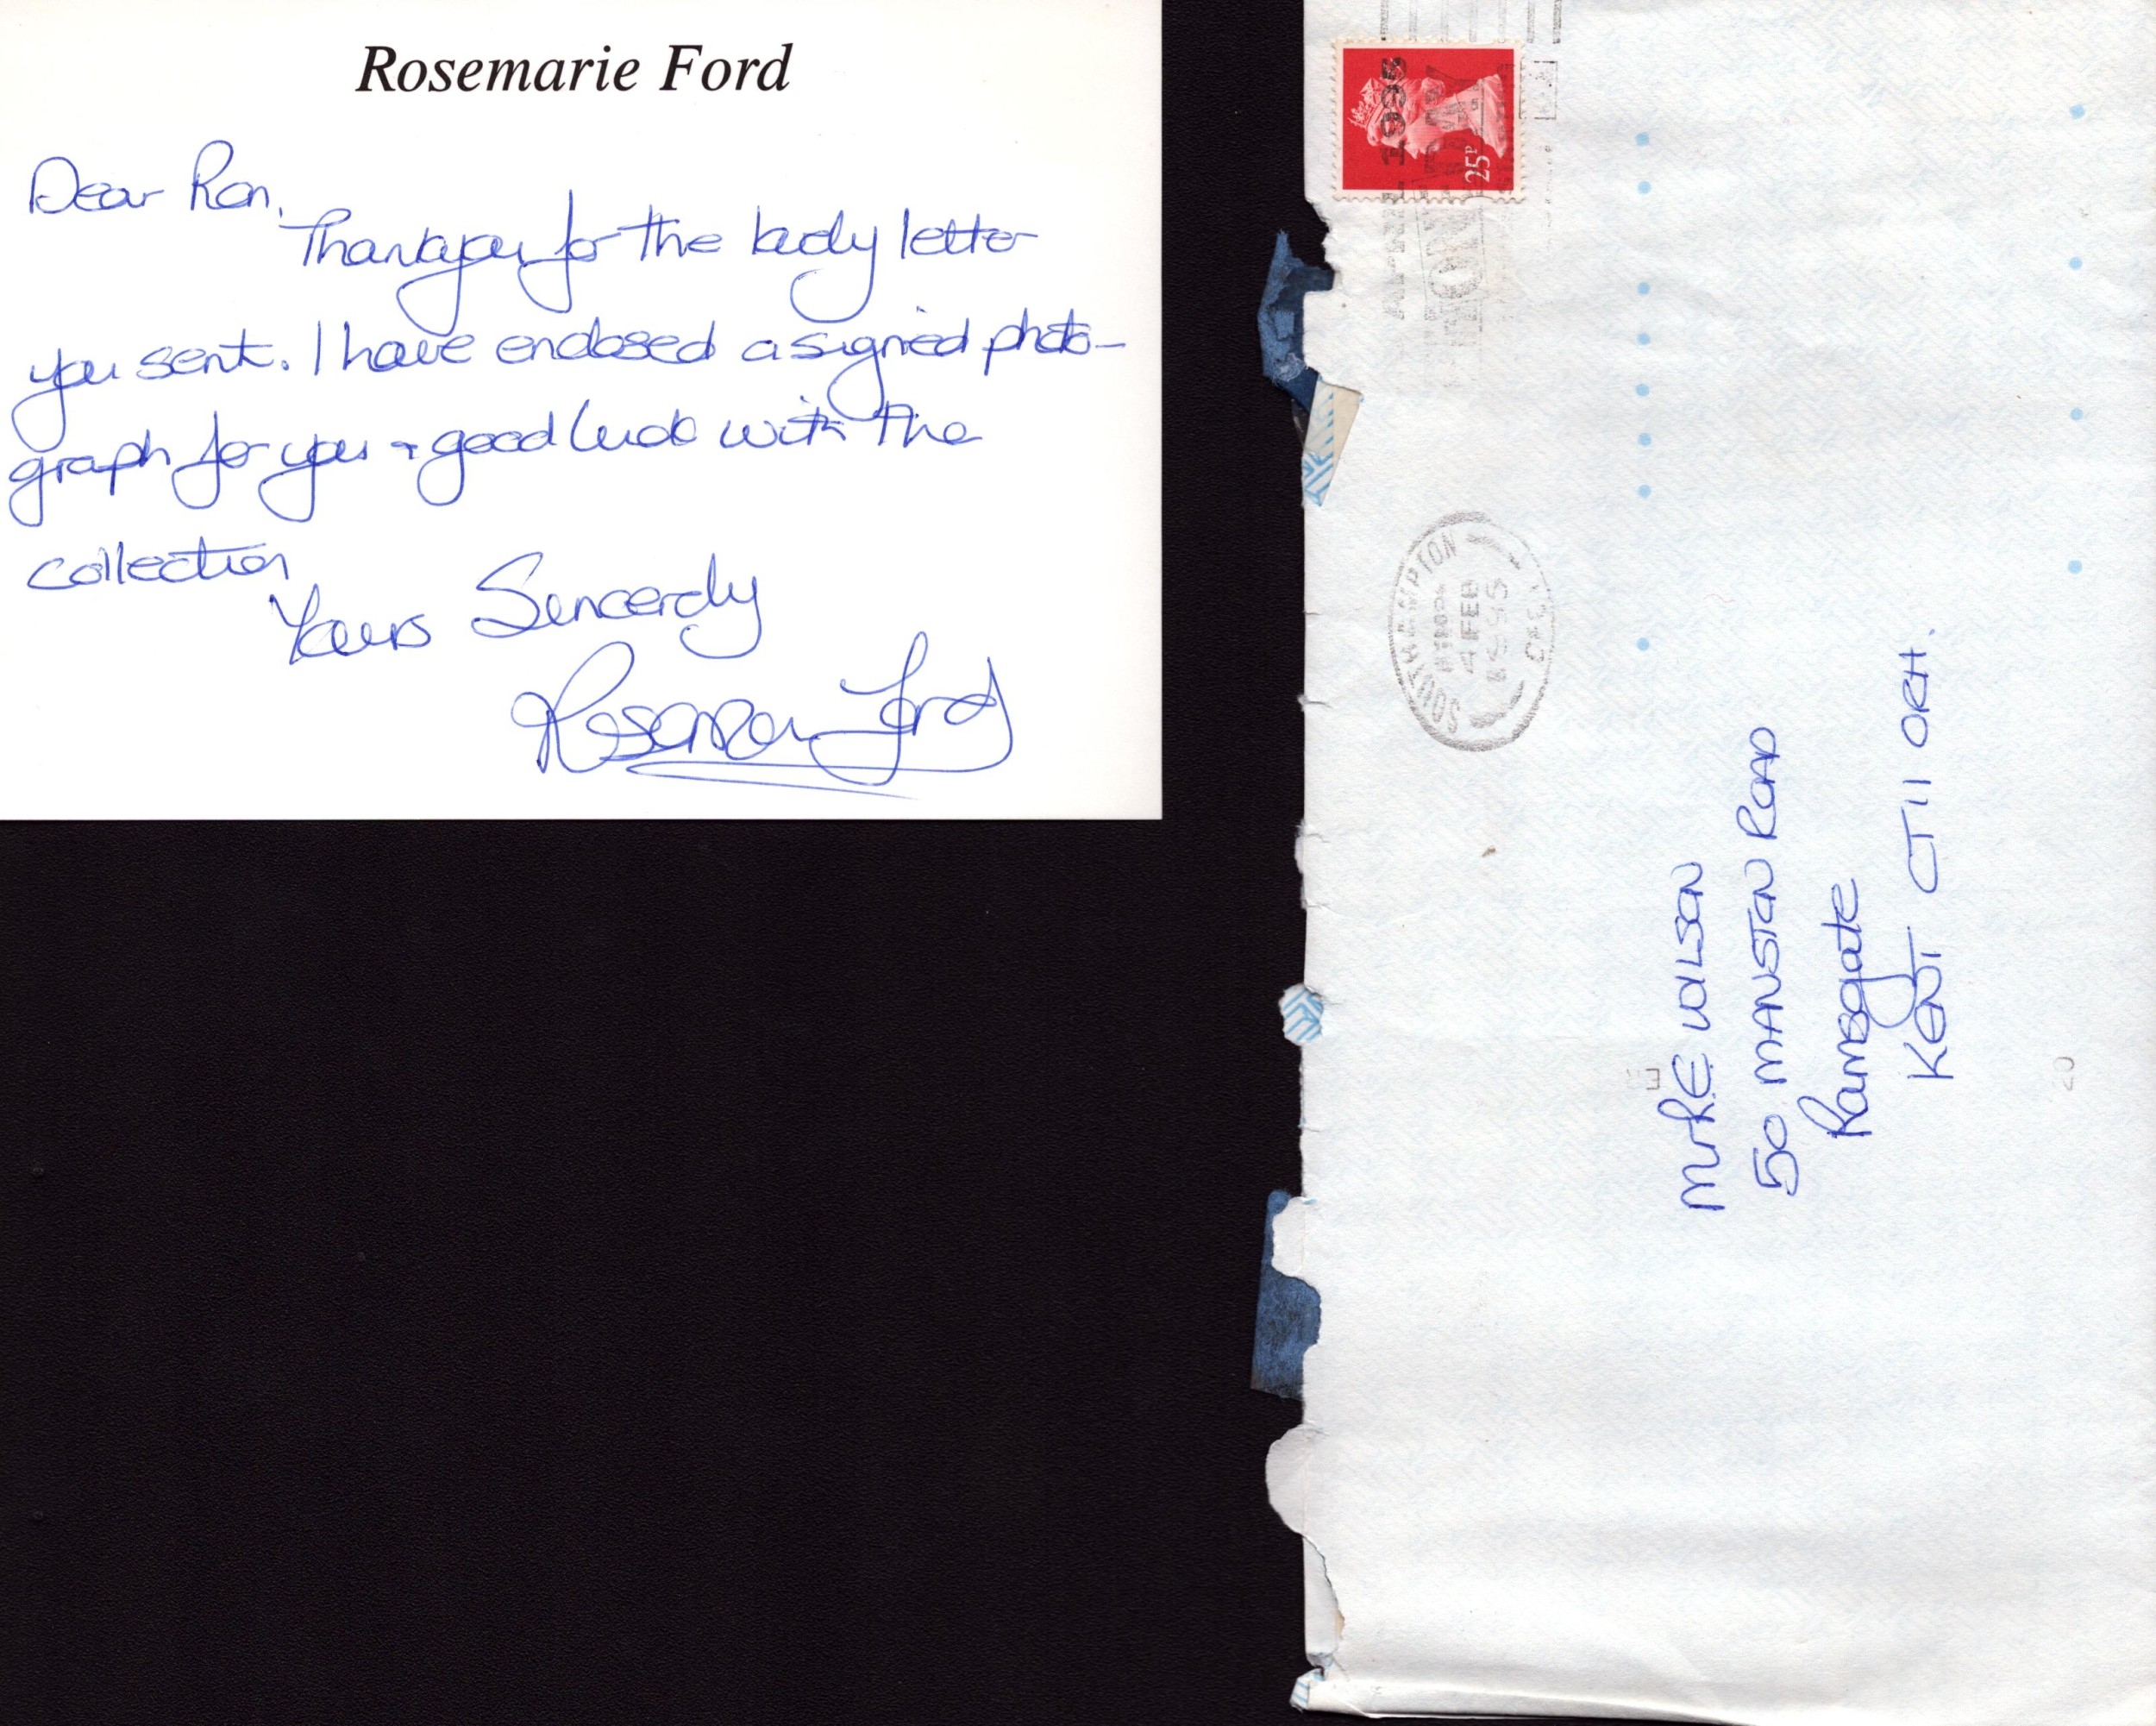 Rosemarie Ford
Dear Ron,
Thankyou for the lovely letter
you sent. I have enclosed a signed photo-
graph for you + good luck with the
collection
Yours Sincerely
Rosemarie Ford
25P
1995
SOUTHAMPTON
4 FEB
1995
Mr R E WILSON
50 MANSTON ROAD
Ramsgate
KENT CT11 0RH.